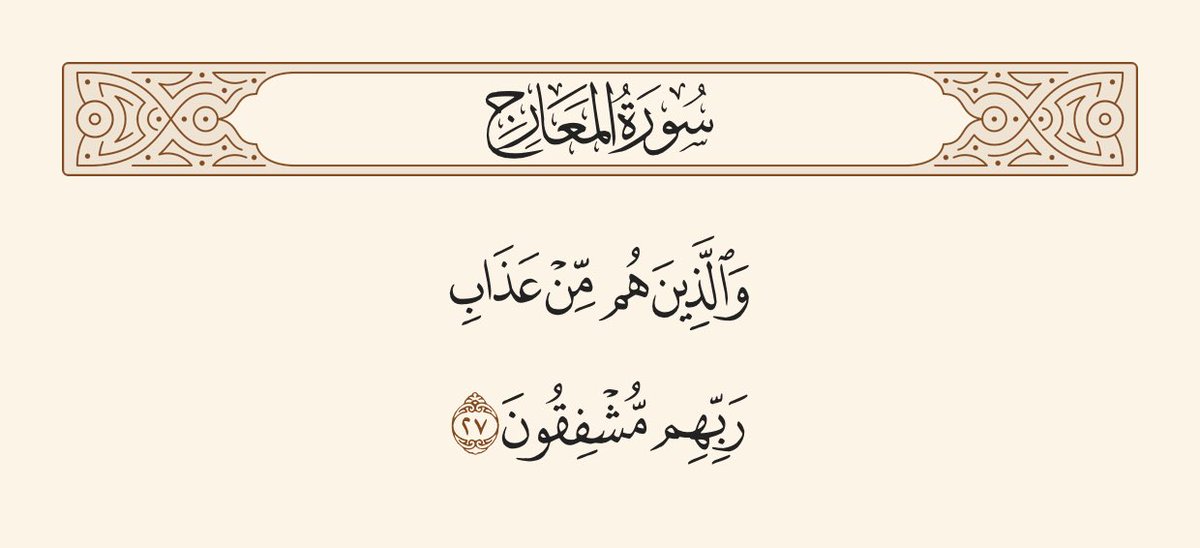 سُورَةُ المَعَارِجِ
وَٱلَّذِينَ هُم مِّنۡ عَذَابِ
رَبِّهِم مُّشۡفِقُونَ ٢٧